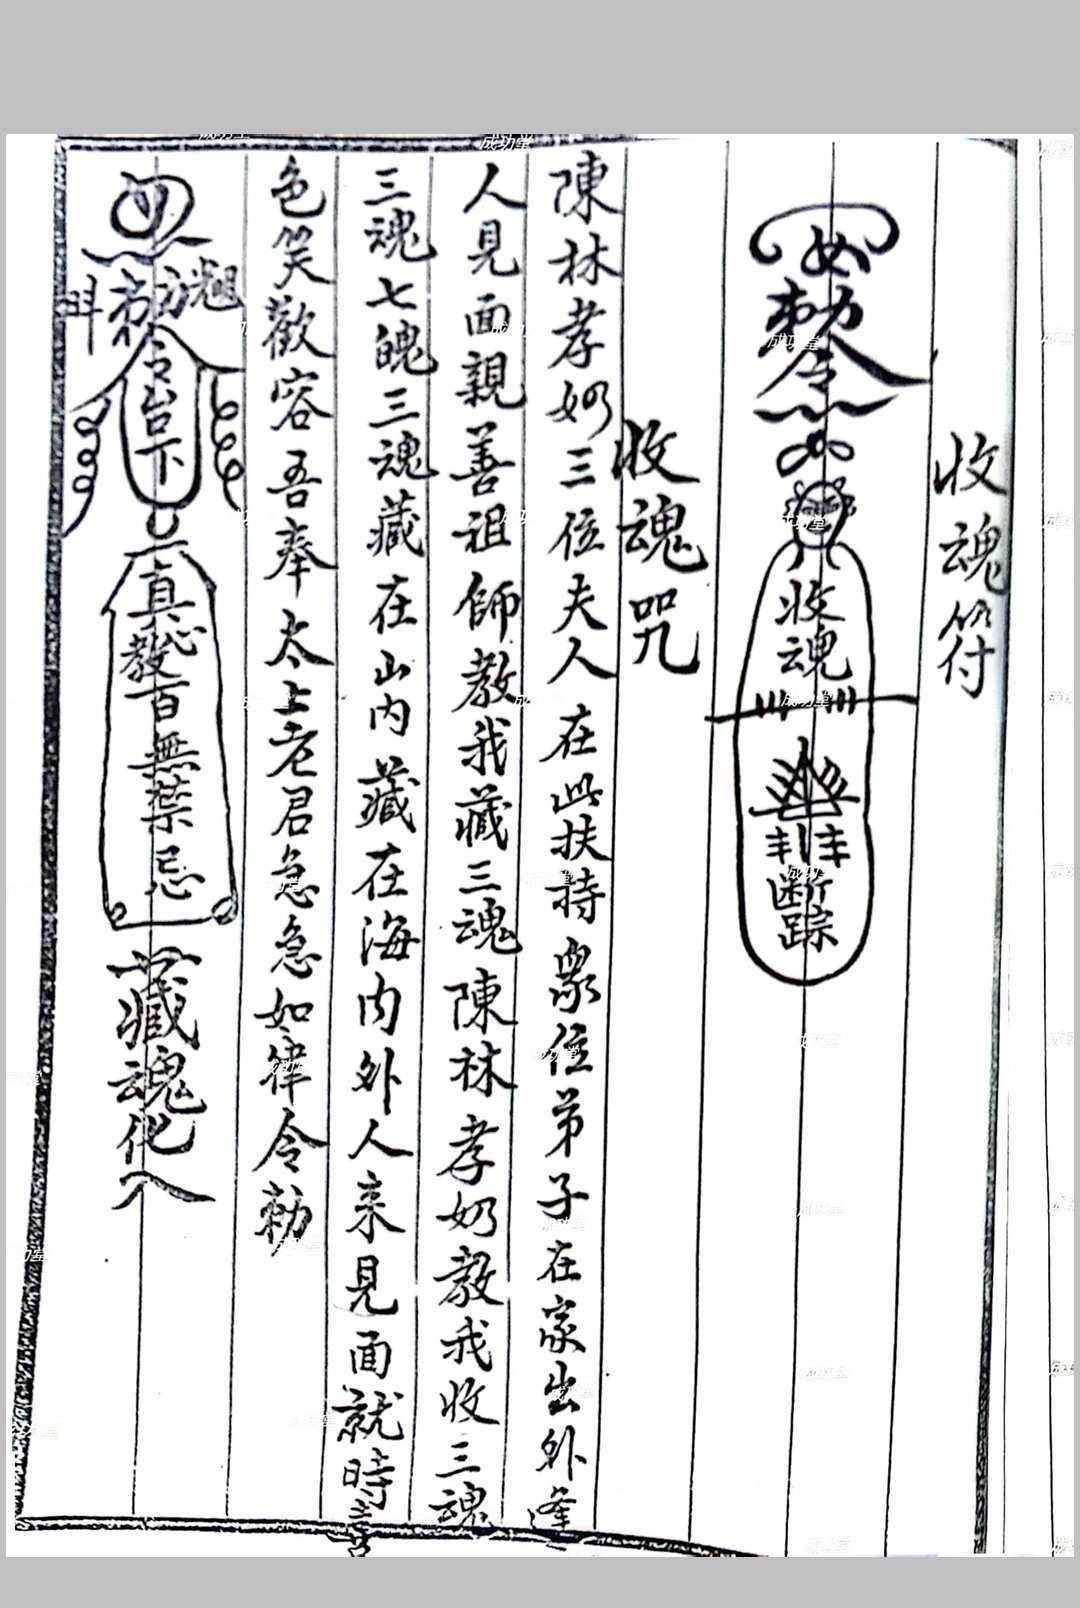 收魂符
女
勅令
收魂
斷踪
收魂咒
陳林孝奶三位夫人在此扶持眾位弟子在家出外逢
人見面親善祖師教我藏三魂陳林孝奶教我收三魂
三魂七魄三魂藏在山內藏在海內外人来見面就時喜
色笑歡容吾奉太上老君急急如律令勅
勅令
台下
真心教百無禁忌
藏魂化入
成功堂